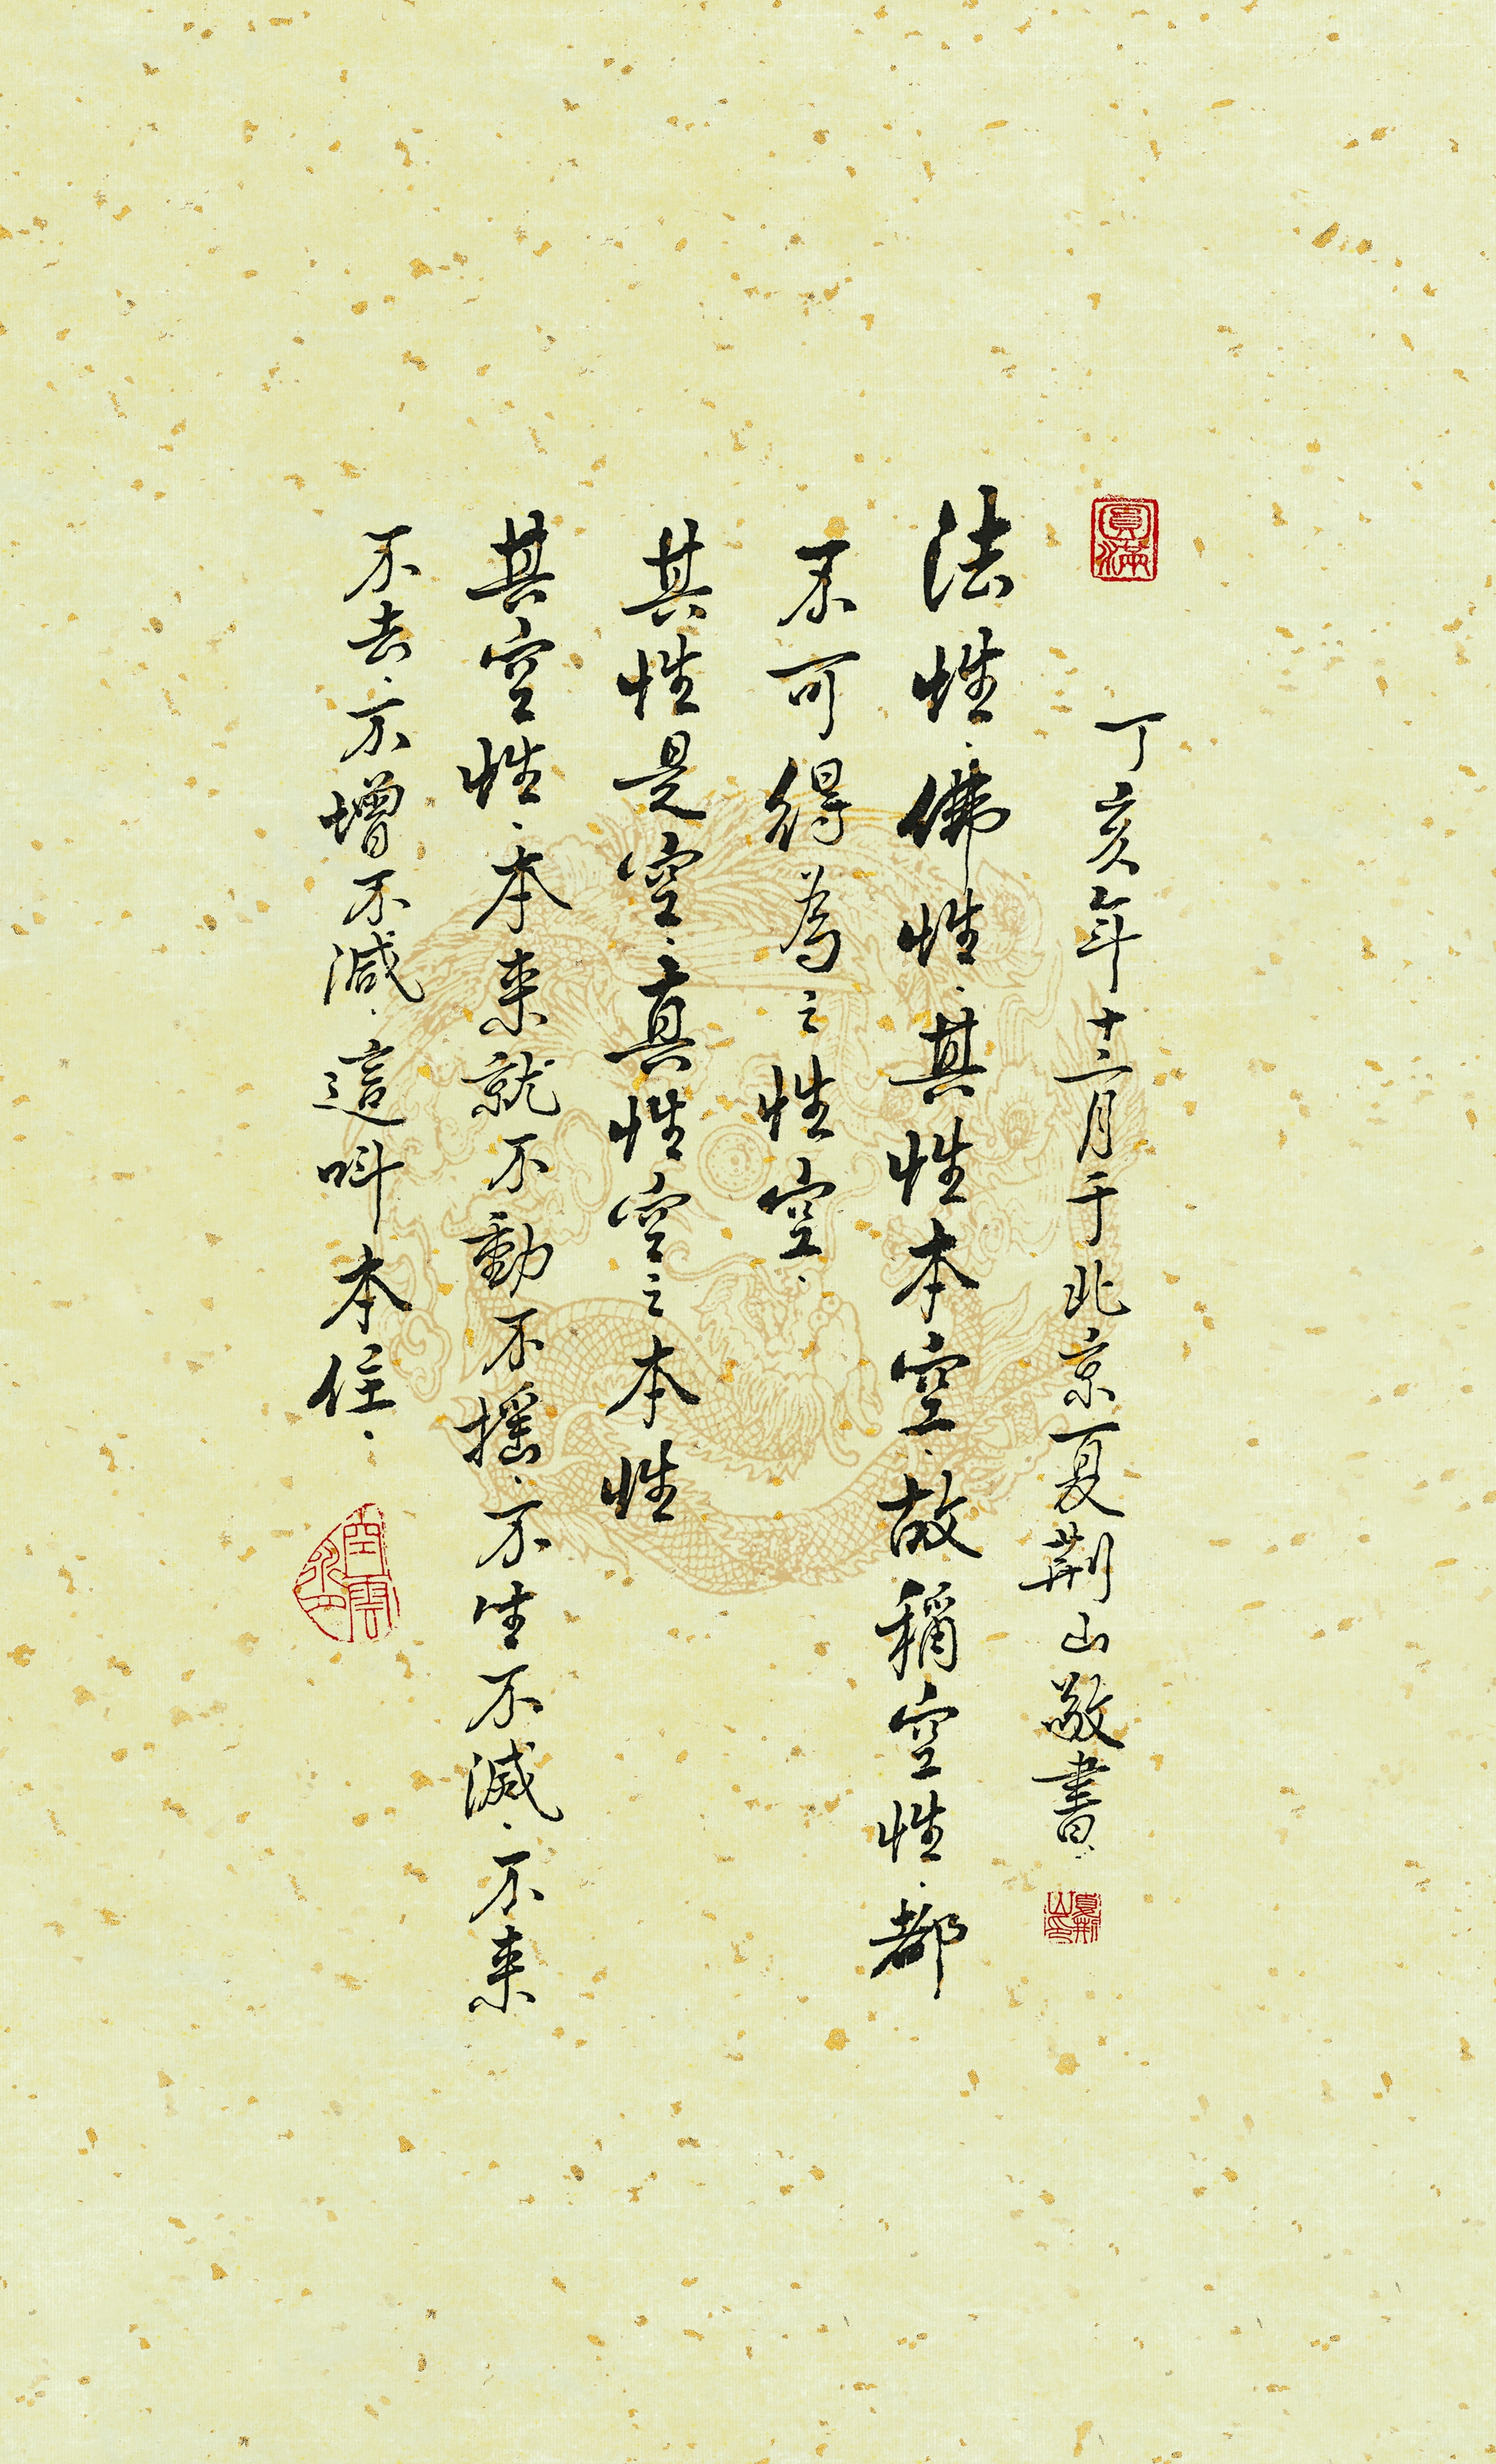 圓滿
丁亥年十二月于北京夏荆山敬書
法性·佛性·其性本空·故稱空性·都
不可得為之性空·
其性是空·真性空之本性
其空性·本来就不動不摇·不生不滅·不来
不去·不增不減·這叫本住·
夏荆山印